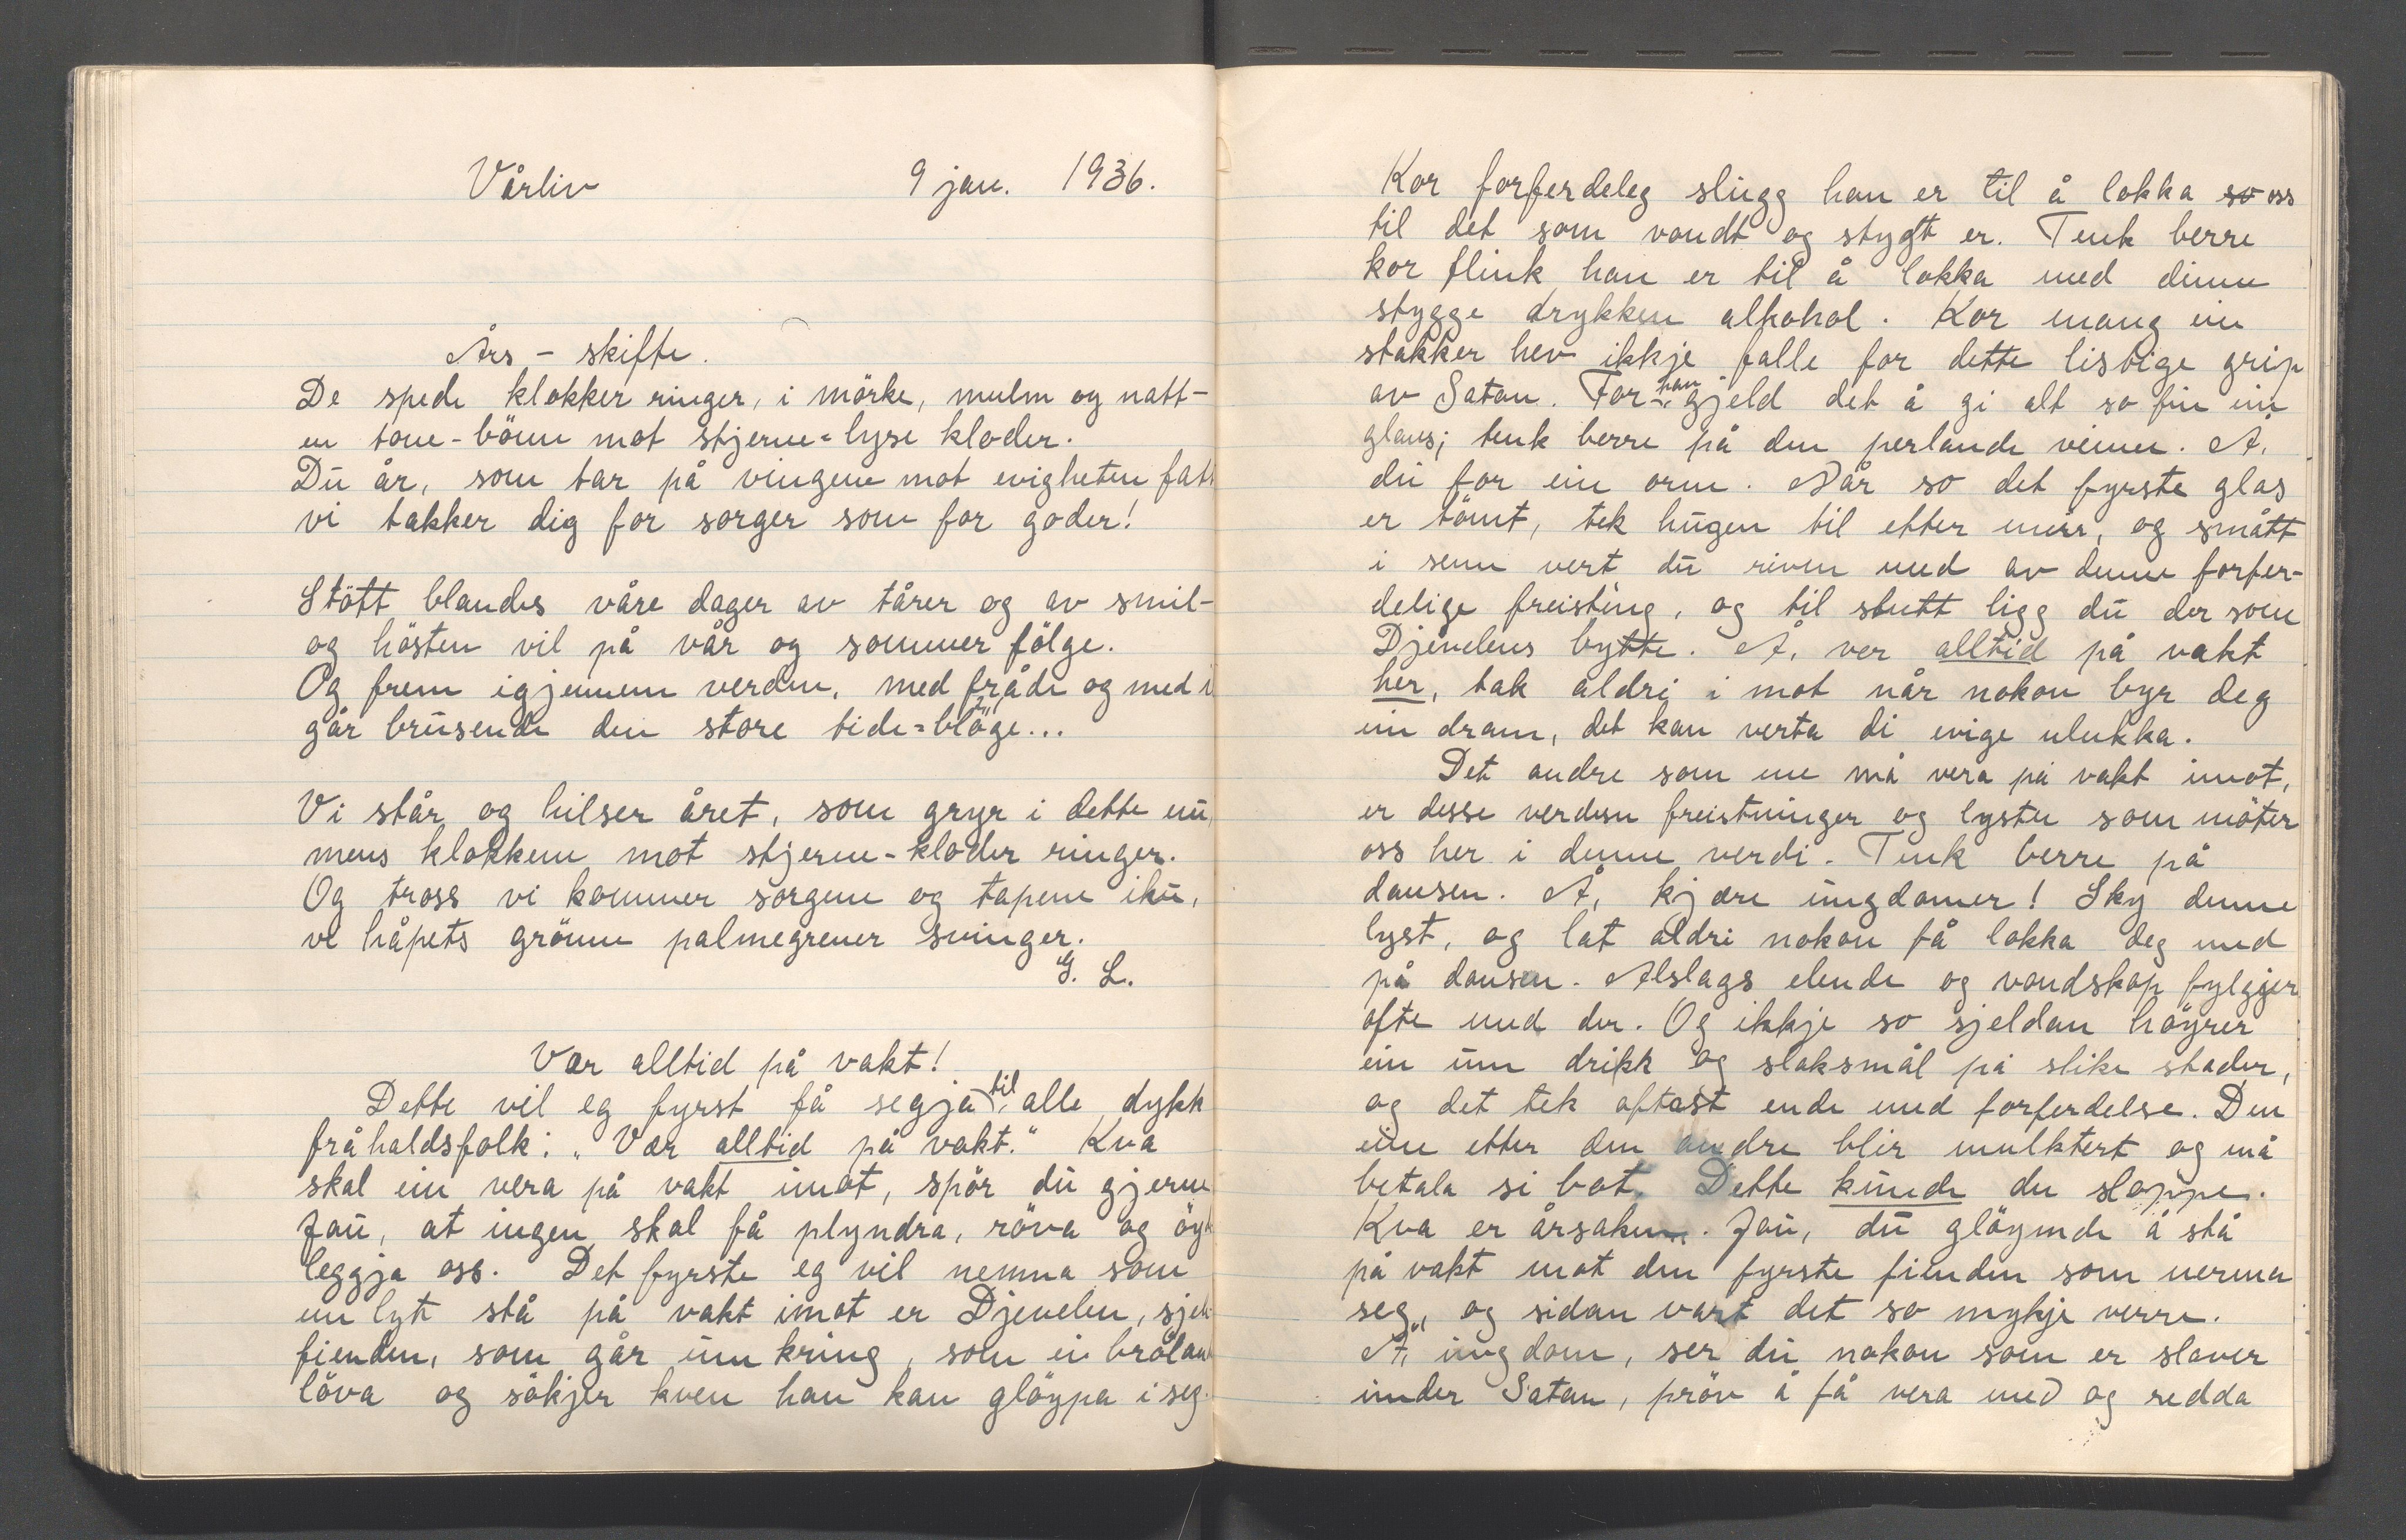 Vårliv 9 jan. 1936.
Års - skifte.
De spede klokker ringer, i mörke, mulm og natt-
en tone-bönn mot stjerne=lyse kloder.
Du år, som tar på vingene mot evigheten fatt
vi takker dig for sorger som for goder!
Stött blandes våre dager av tårer og av smil-
og hösten vil på vår og sommer fölge.
Og frem igjennem verden, med fråde og med i
går brusende den store tide=bölge...
Vi står og hilser året, som gryr i dette nu,
mens klokkene mot stjerne-kloder ringer.
Og tross vi kommer sorgene og tapene ihu,
vi håpets grönne palmegrener svinger.
G. L.
Vær alltid på vakt!
Dette vil eg fyrst få segja til alle dykk
fråhaldsfolk: "Vær alltid på vakt." Kva
skal ein vera på vakt imot, spör du gjerne
Jau, at ingen skal få plyndra, röva og öy
leggja oss. Det fyrste eg vil nemna som
ein lyt stå på vakt imot er Djevelen, sjele
fienden, som går um kring, som ei brölan
löva og sökjer kven han kan glöypa i seg.
Kor forferdeleg slugg han er til å lokka so oss
til det som vondt og stygt er. Tenk berre
kor flink han er til å lokka med denne
stygge drykken alkohol. Kor mang ein
stakker hev ikkje falle for dette listige grip
av Satan. For han gjeld det å gi alt so fin ein
glans; tenk berre på den perlande vinen. Å,
du for ein orm. Når so det fyrste glas
er tömt, tek hugen til etter meir, og smått
i senn vert du riven med av denne forfer-
delige freisting, og til slutt ligg du der som
Djevelens bytte. Å, ver alltid på vakt
her, tak aldri i mot når nokon byr deg
ein dram, det kan verta di evige ulukka.
Det andre som me må vera på vakt imot,
er desse verdsn freistninger og lyster som möter
oss her i denne verdi. Tenk berre på
dansen. Å, kjære ungdomer! Sky denne
lyst, og lat aldri nokon få lokka deg med
på dansen. Alslags elende og vondskap fylgjer
ofte med der. Og ikkje so sjeldan höyrer
ein um drikk og slaksmål på slike stader,
og det tek oftast ende med forferdelse. Den
eine etter den andre blir mulktert og må
betala si bot. Dette kunde du sloppe.
Kva er årsaken. Jau, du glöymde å stå
på vakt mot den fyrste fienden som nerma
seg, og sidan vart det so mykje verre.
Å, ungdom, ser du nokon som er slaver
under Satan, pröv å få vera med og redda